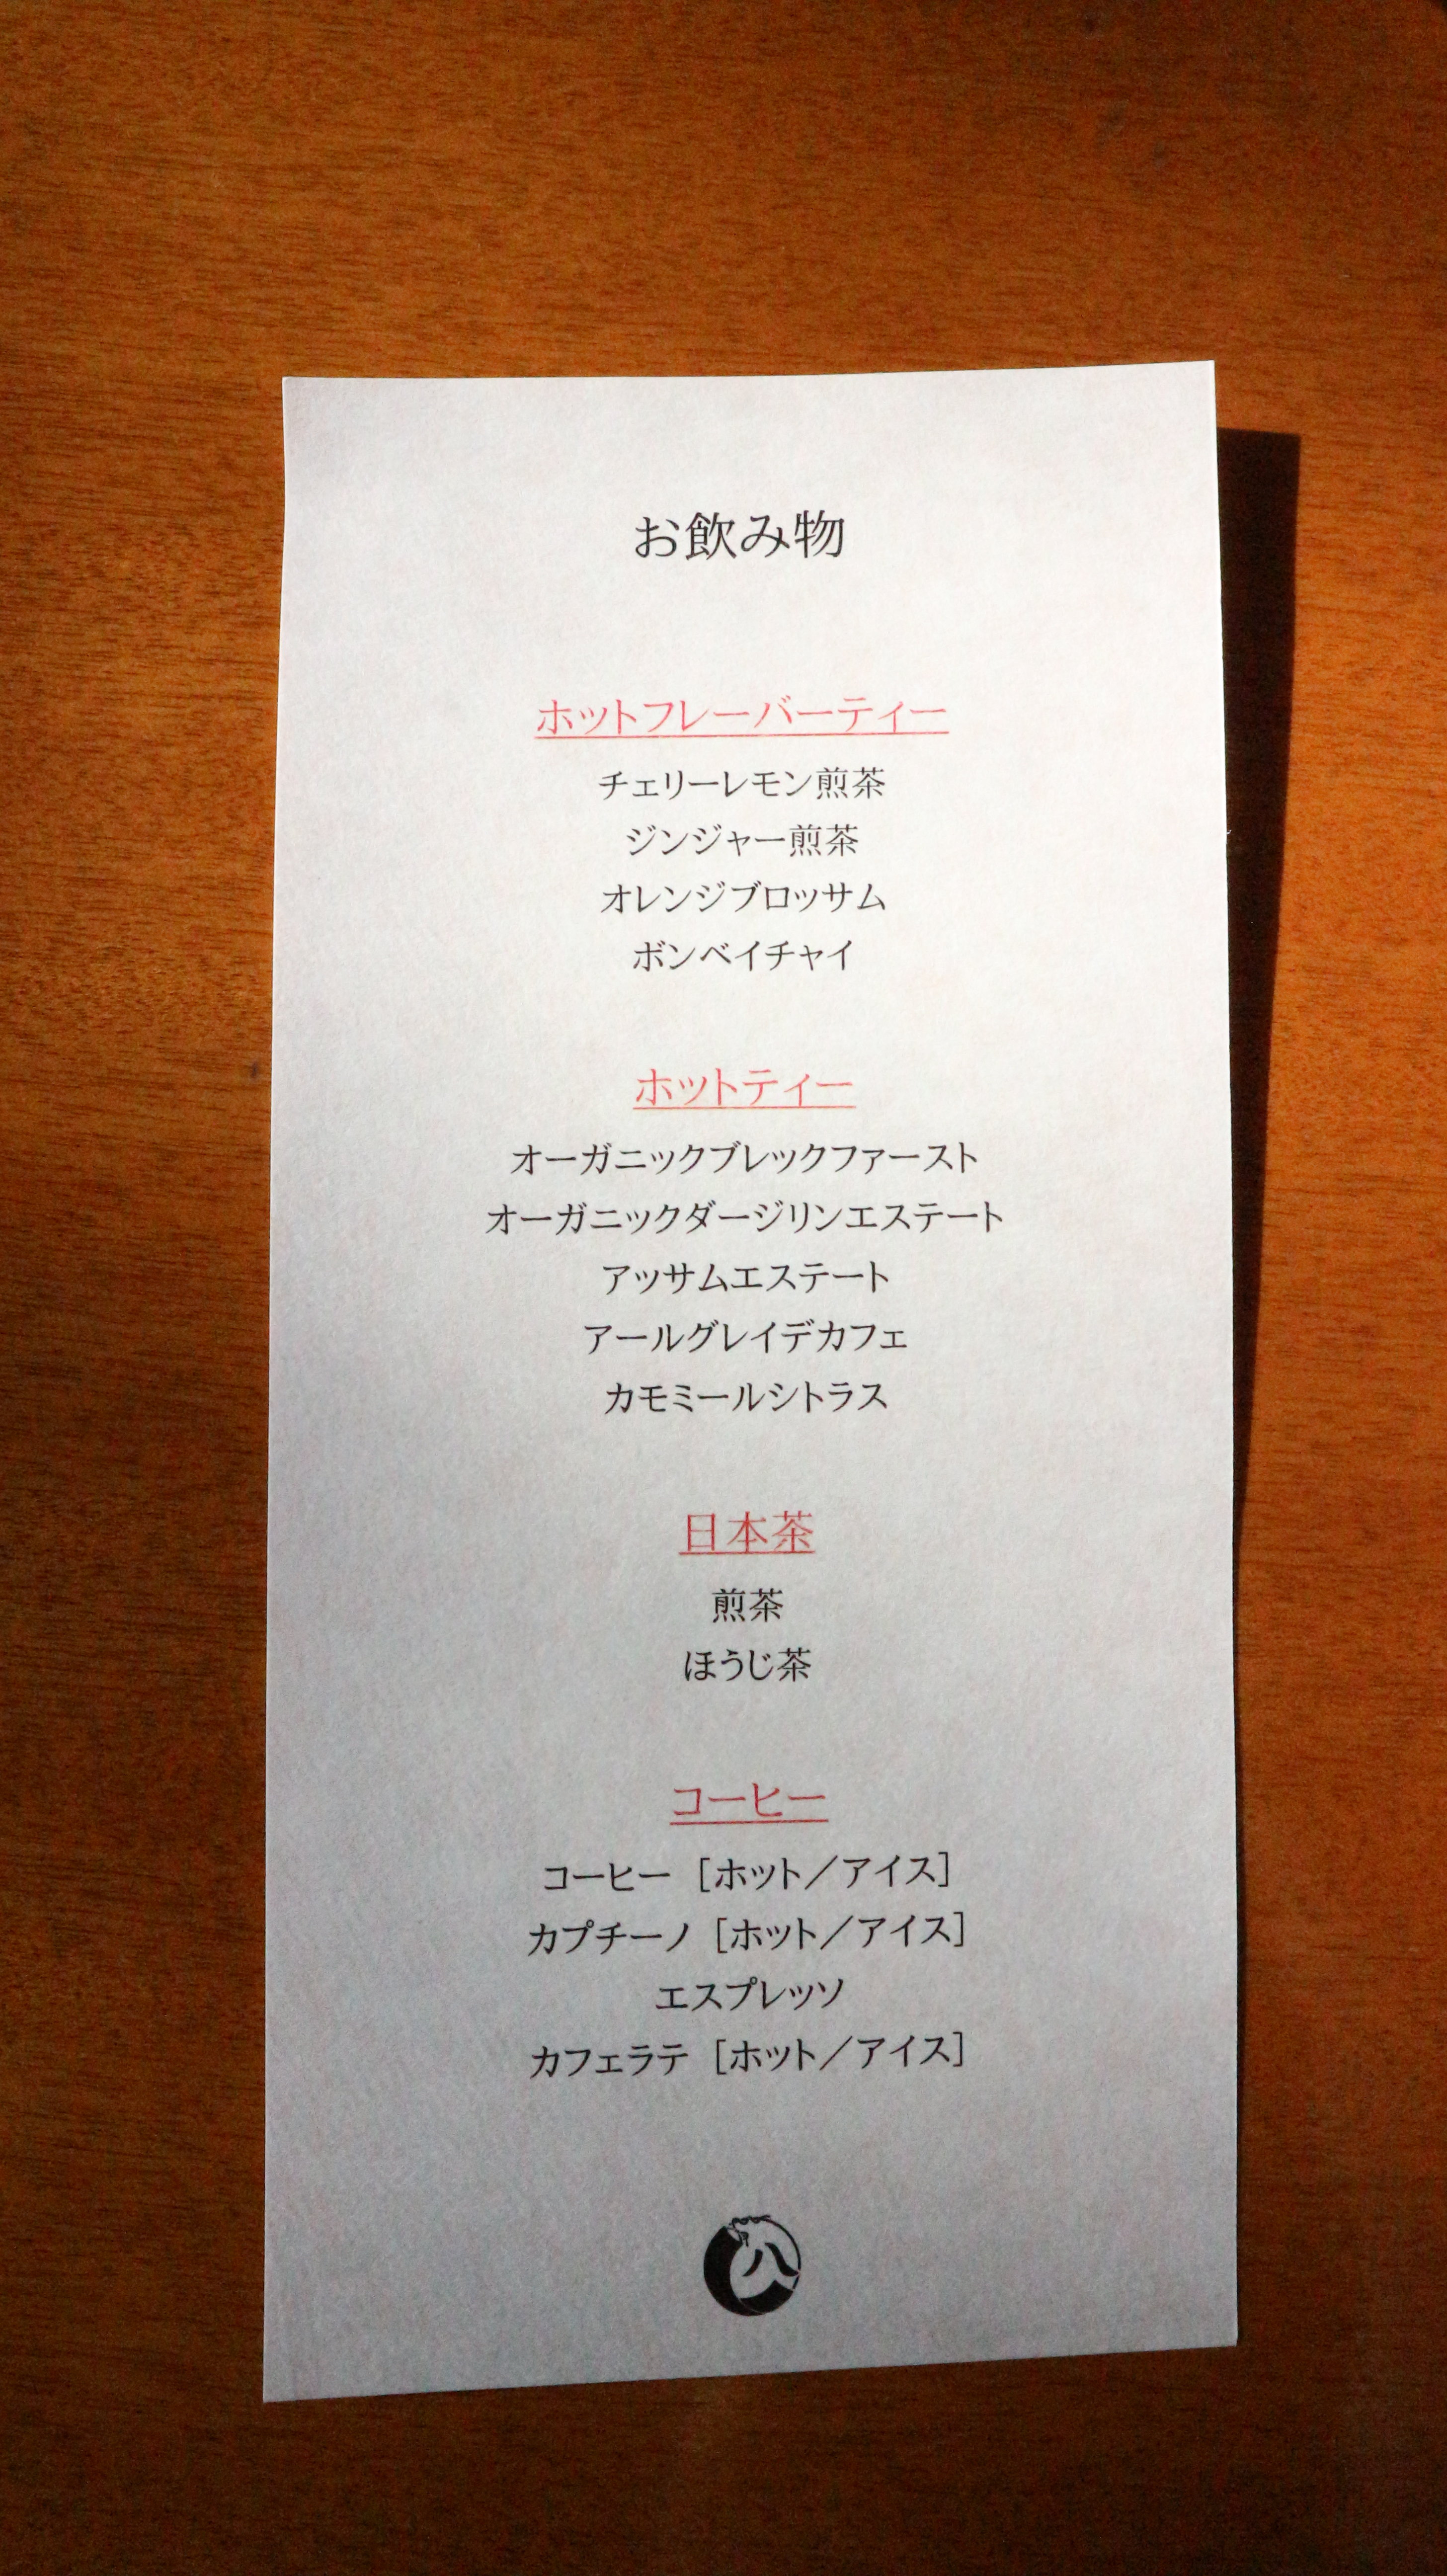 お飲み物
ホットフレーバーティー
チェリーレモン煎茶
ジンジャー煎茶
オレンジブロッサム
ボンベイチャイ
ホットティー
オーガニックブレックファースト
オーガニックダージリンエステート
アッサムエステート
アールグレイデカフェ
カモミールシトラス
日本茶
煎茶
ほうじ茶
コーヒー
コーヒー［ホット／アイス］
カプチーノ［ホット／アイス］
エスプレッソ
カフェラテ［ホット／アイス］
八